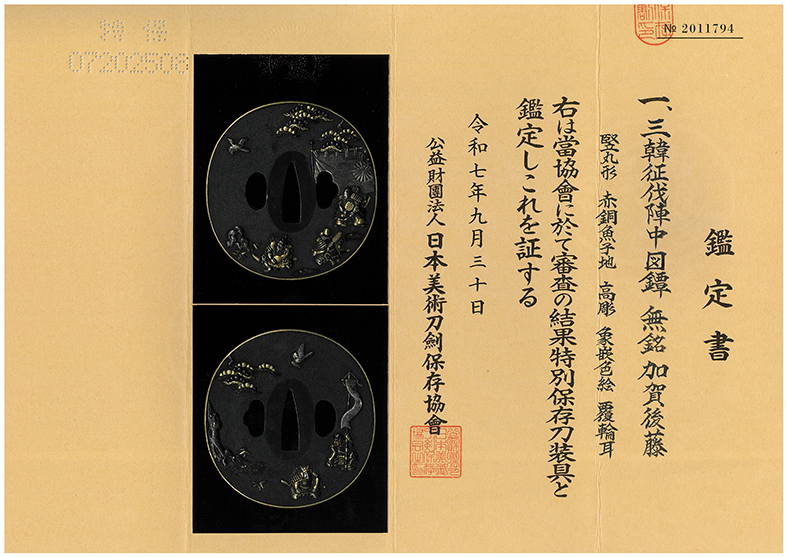 № 2011794
鑑定書
一、三韓征伐陣中図鐔 無銘 加賀後藤
竪丸形 赤銅魚子地 高彫 象嵌色絵 覆輪耳
右は當協會に於て審査の結果特別保存刀装具と
鑑定しこれを証する
令和七年九月三十日
公益財團法人 日本美術刀劍保存協會
07202508